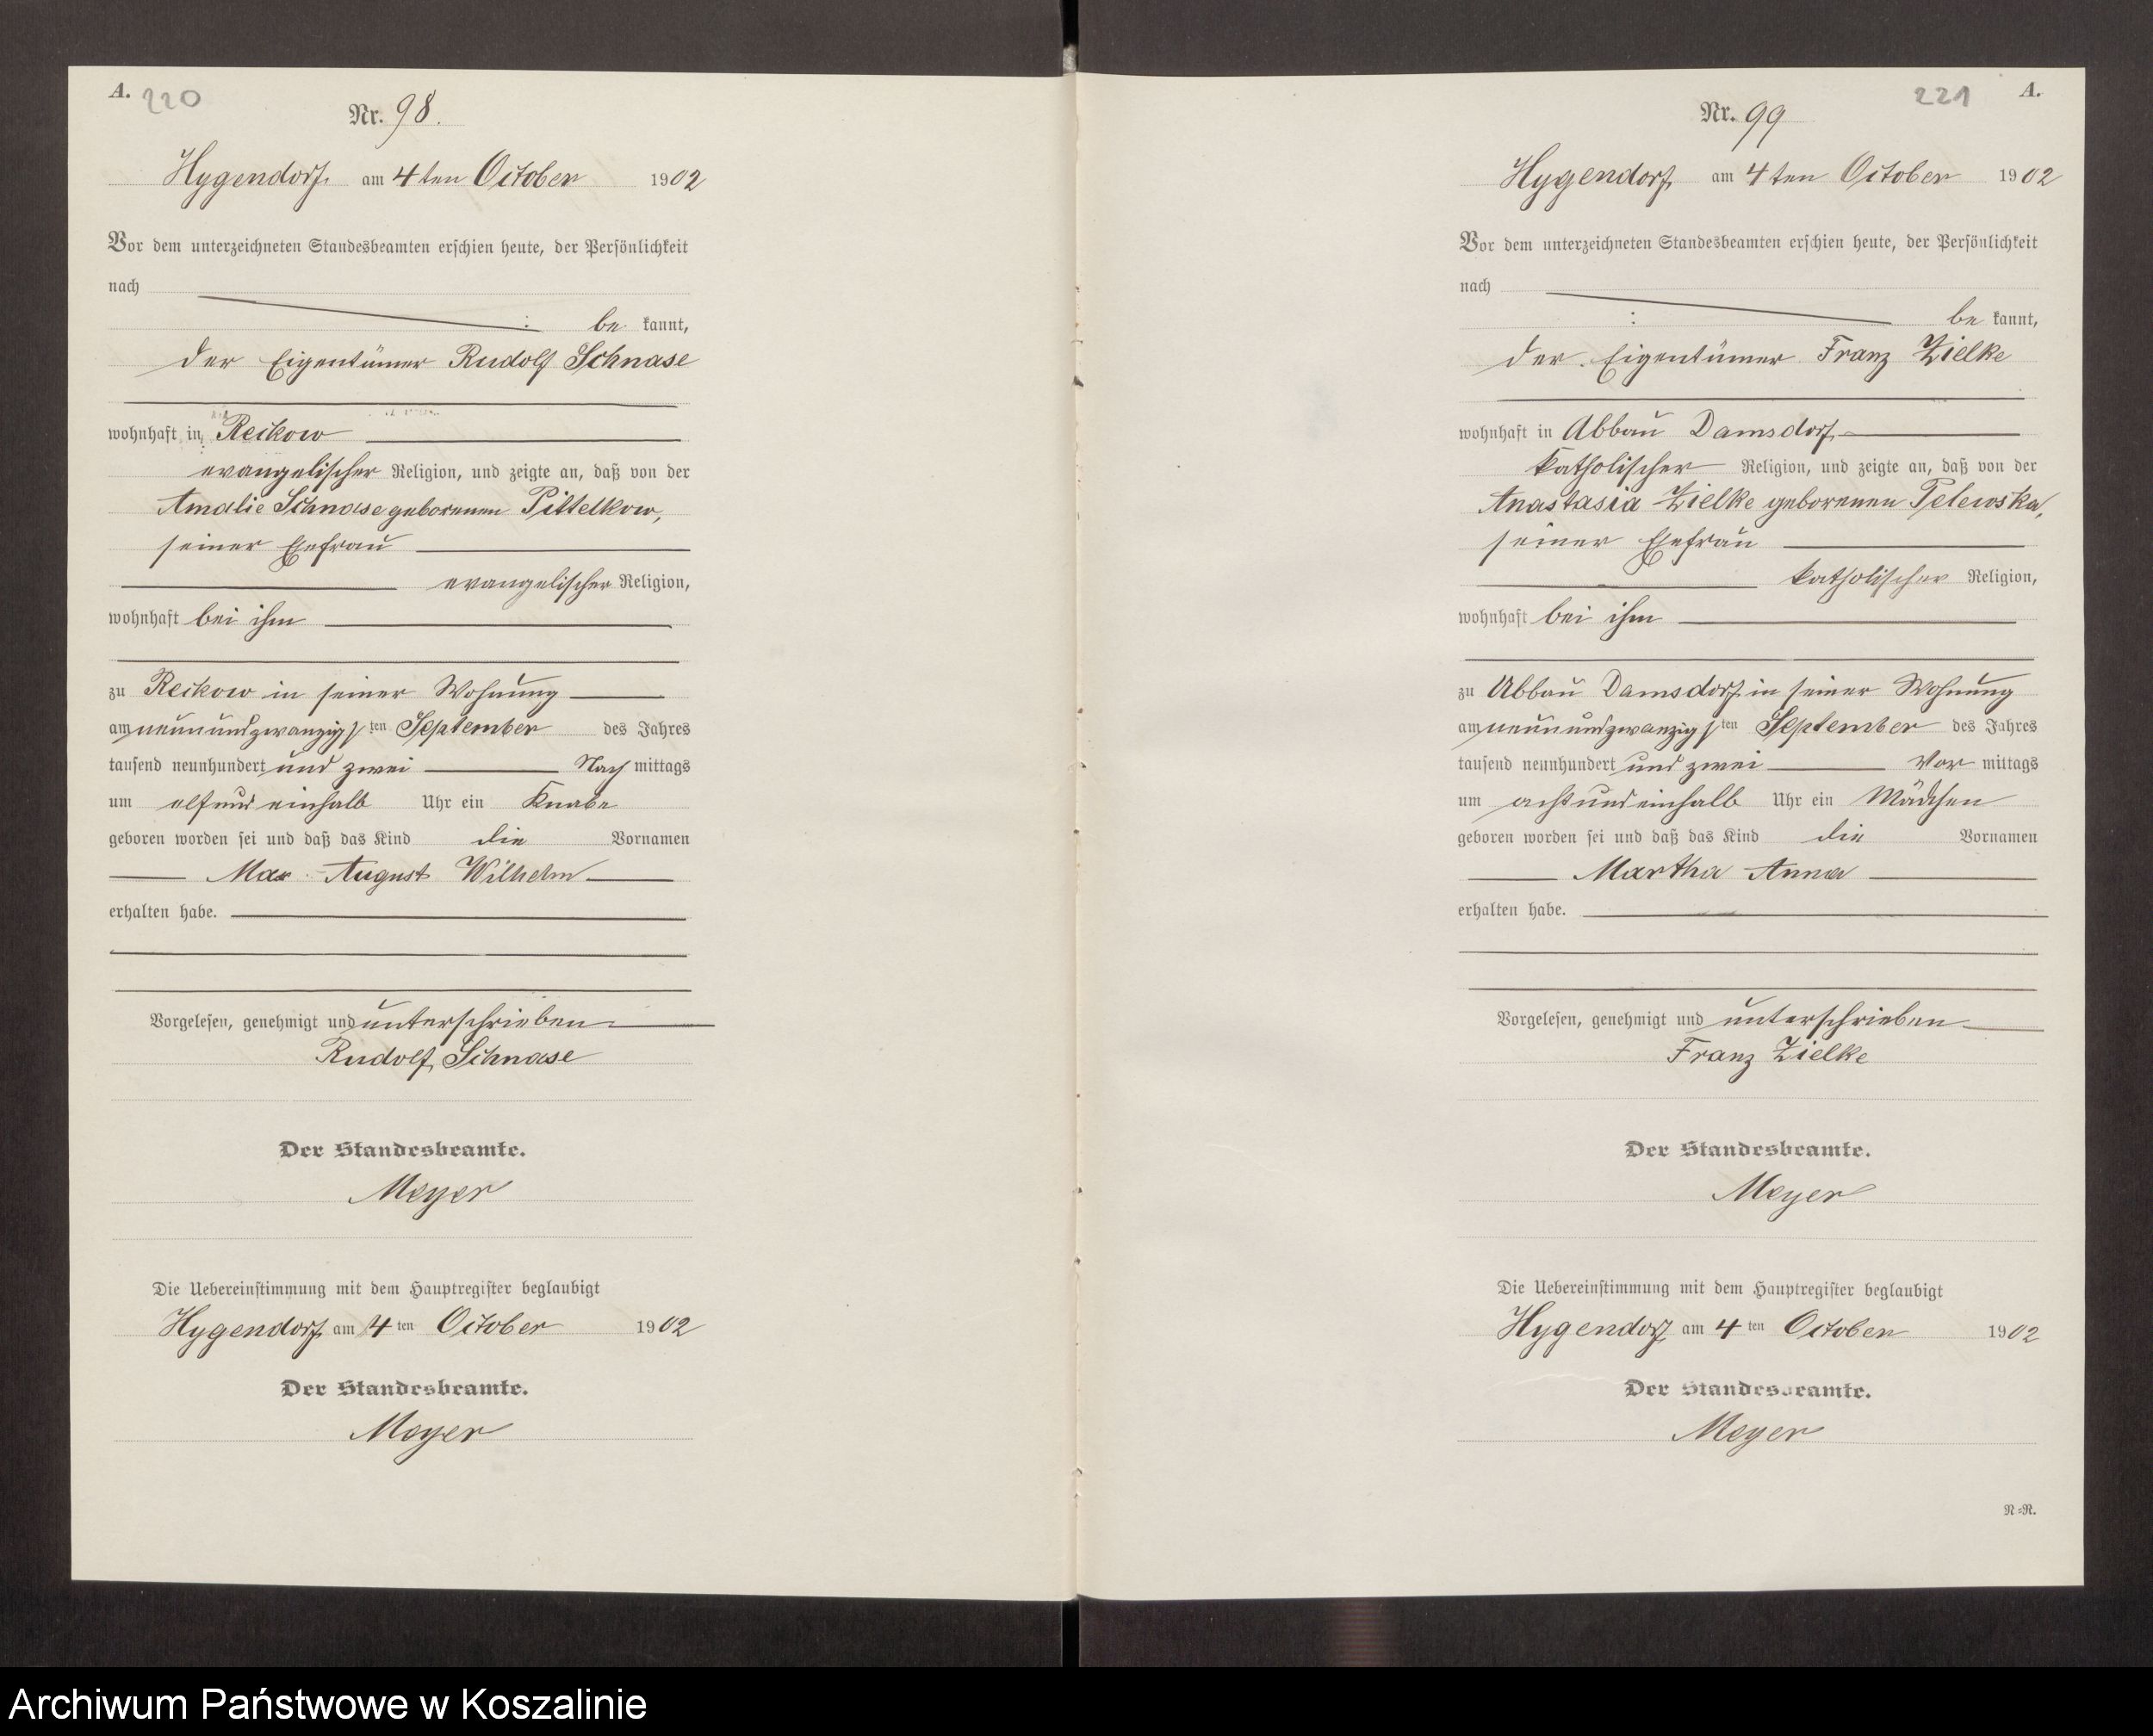 A. 220
Nr. 98.
Hygendorf am 4ten October 1902
Vor dem unterzeichneten Standesbeamten erschien heute, der Persönlichkeit
nach
be kannt,
der Eigentümer Rudolf Schnase
wohnhaft in Reckow
evangelischer Religion, und zeigte an, daß von der
Amalie Schnase geborenen Pittelkow,
seiner Ehefrau
evangelischer Religion,
wohnhaft bei ihm
zu Reckow in seiner Wohnung
am neunundzwanzigsten September des Jahres
tausend neunhundert und zwei Nach mittags
um elfundeinhalb Uhr ein Knabe
geboren worden sei und daß das Kind die Vornamen
Max August Wilhelm
erhalten habe.
Vorgelesen, genehmigt und unterschrieben
Rudolf Schnase
Der Standesbeamte.
Meyer
Die Uebereinstimmung mit dem Hauptregister beglaubigt
Hygendorf am 4ten October 1902
Der Standesbeamte.
Meyer
221 A.
Nr. 99
Hygendorf am 4ten October 1902
Vor dem unterzeichneten Standesbeamten erschien heute, der Persönlichkeit
nach
be kannt,
der Eigentümer Franz Zielke
wohnhaft in Abbau Damsdorf
katholischer Religion, und zeigte an, daß von der
Anastasia Zielke geborenen Pelewska,
seiner Ehefrau
katholischer Religion,
wohnhaft bei ihm
zu Abbau Damsdorf in seiner Wohnung
am neunundzwanzigsten September des Jahres
tausend neunhundert und zwei Vor mittags
um achtundeinhalb Uhr ein Mädchen
geboren worden sei und daß das Kind die Vornamen
Martha Anna
erhalten habe.
Vorgelesen, genehmigt und unterschrieben
Franz Zielke
Der Standesbeamte.
Meyer
Die Uebereinstimmung mit dem Hauptregister beglaubigt
Hygendorf am 4ten October 1902
Der Standesbeamte.
Meyer
N=R.
Archiwum Państwowe w Koszalinie